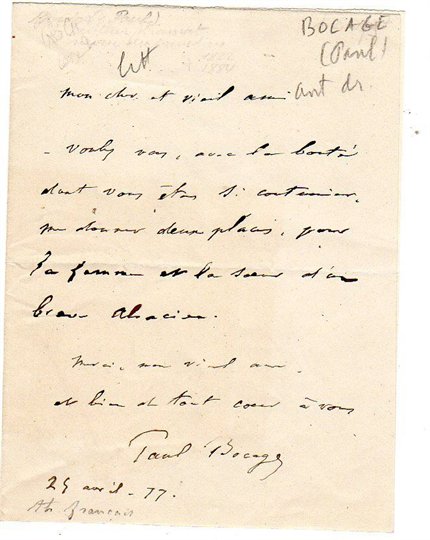 BOCAGE
(Paul)
Litt
aut dr.
mon cher et vieil ami
- Voulez vous, avec la bonté
dont vous êtes si coutumier,
me donner deux places, pour
la femme et la sœur d'un
brave Alsacien.
merci, mon vieil ami,
et bien de tout cœur à vous
Paul Bocage
25 avril - 77.
Th. français